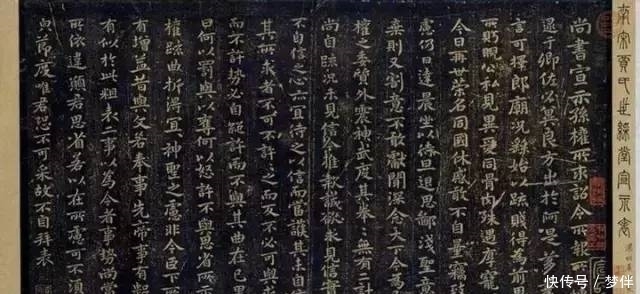 南宋賈氏世綵堂宣示表
尚書宣示孫權所求詔令所報所
逮于卿佐必冀良方出於阿是芻
言可擇郎廟況繇始以疏賤得為前恩
所盱睨公私見異愛同骨肉殊遇厚寵
今日再世榮名同國休慼敢不自量竊致
慮仍日達晨坐以待旦退思鄙淺聖意
棄則又割意不敢獻聞深念天下今為
權之委質外震神武度其拳拳無有
尚自疏況未見信今推款誠欲求見信實
不自信之心亦宜待之以信而當護其未自
其所求者不可不許許之而反不必可與求
而不許勢必自絕許而不與其曲在己里
曰何以罰與以奪何以怒許不與思省所示
權疏曲折得宜宜神聖之慮非今臣下所
有增益昔與文若奉事先帝事有數
有似於此粗表二事以為今者事勢尚當
所依違願君思省若以在所慮可不須
白節度唯君恐不可采故不自拜表
快传号 / 梦伴